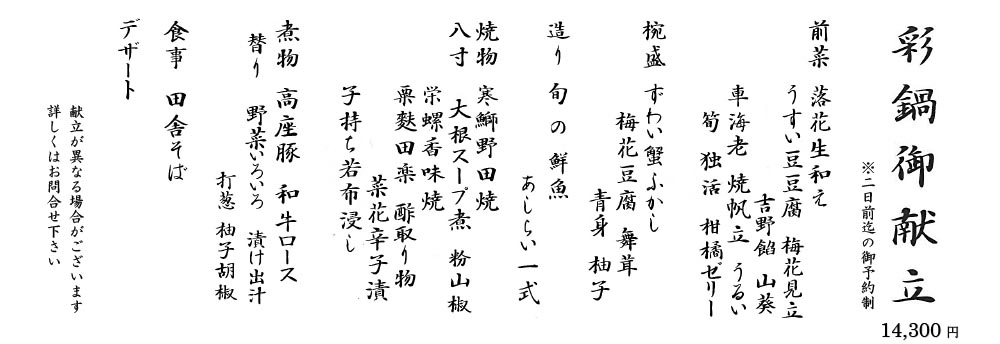 彩鍋御献立
※二日前迄の御予約制
14,300 円
前菜 落花生和え
うすい豆豆腐 梅花見立
吉野餡 山葵
車海老 焼帆立 うるい
筍 独活 柑橘ゼリー
椀盛 ずわい蟹ふかし
梅花豆腐 舞茸
青身 柚子
造り 旬の鮮魚
あしらい一式
焼物 寒鰤野田焼
八寸 大根スープ煮 粉山椒
栄螺香味焼
粟麩田楽 酢取り物
菜花辛子漬
子持ち若布浸し
煮物 高座豚 和牛ロース
替り 野菜いろいろ 漬け出汁
打葱 柚子胡椒
食事 田舎そば
デザート
献立が異なる場合がございます
詳しくはお問合せ下さい